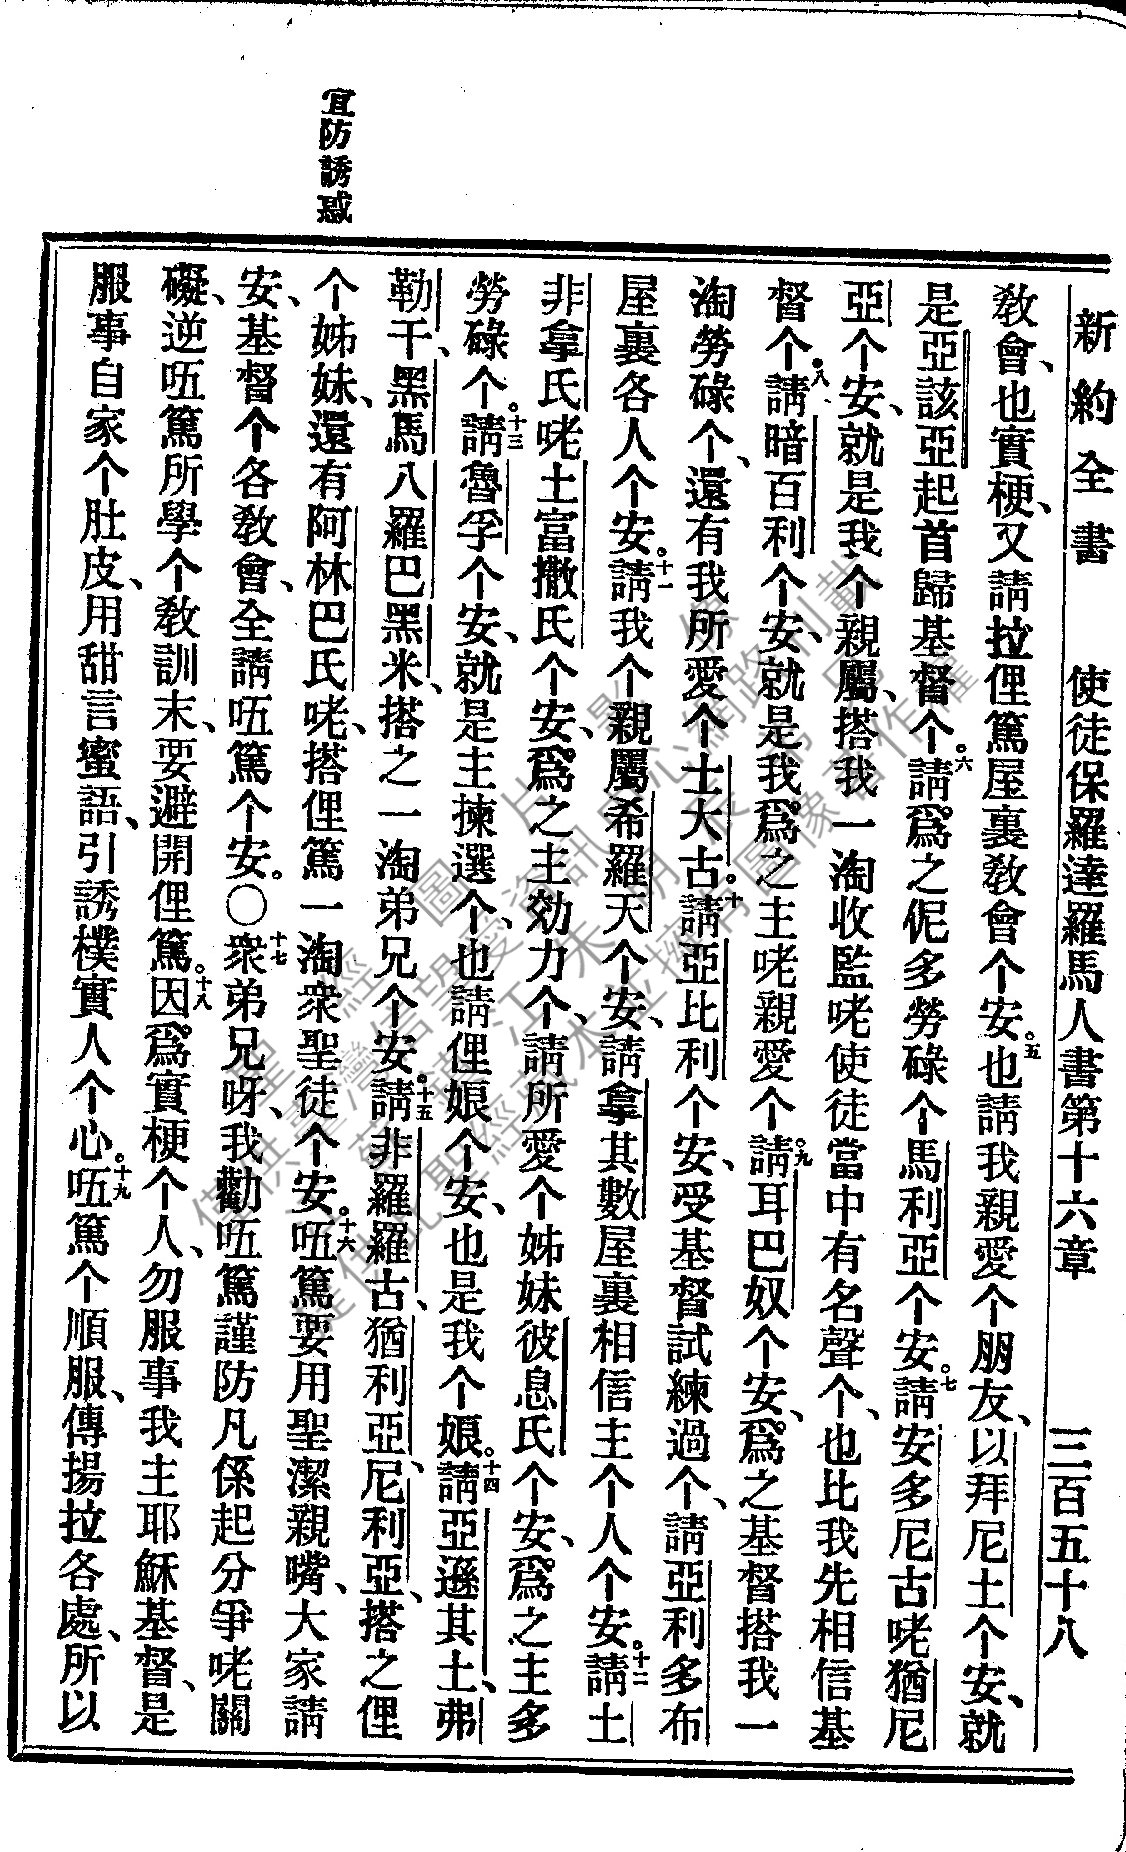 新約全書 使徒保羅達羅馬人書第十六章 三百五十八
敎會、也實梗、又請拉俚篤屋裏敎會个安。五也請我親愛个朋友、以拜尼土个安、就
是亞該亞起首歸基督个。六請爲之伲多勞碌个馬利亞个安。七請安多尼古咾猶尼
亞个安、就是我个親屬、搭我一淘收監咾使徒當中有名聲个、也比我先相信基
督个。八請暗百利个安、就是我爲之主咾親愛个。九請耳巴奴个安、爲之基督搭我一
淘勞碌个、還有我所愛个士大古。十請亞比利个安、受基督試練過个、請亞利多布
屋裏各人个安。十一請我个親屬希羅天个安、請拿其數屋裏相信主个人个安。十二請土
非拿氏咾土富撒氏个安、爲之主効力个、請所愛个姊妹彼息氏个安、爲之主多
勞碌个。十三請魯孚个安、就是主揀選个、也請俚娘个安、也是我个娘。十四請亞遜其土、弗
勒干、黑馬八羅巴黑米、搭之一淘弟兄个安。十五請非羅羅古、猶利亞、尼利亞、搭之俚
个姊妹、還有阿林巴氏咾、搭俚篤一淘衆聖徒个安。十六㖸篤要用聖潔親嘴、大家請
安、基督个各敎會、全請㖸篤个安。〇十七衆弟兄呀、我勸㖸篤謹防凡係起分爭咾關
礙、逆㖸篤所學个敎訓末、要避開俚篤。十八因爲實梗个人、勿服事我主耶穌基督、是
服事自家个肚皮、用甜言蜜語、引誘樸實人个心。十九㖸篤个順服、傳揚拉各處、所以
宜防誘惑